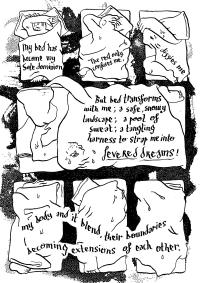 My bed has
become my
safe dominion.
The rest only
confuses me.
types me
But bed transforms
with me; a safe, snowy
landscape; a pool of
sweat; a tangling
harness to strap me into
fevered dreams!
my body and it blend, their boundaries
becoming extensions of each other.